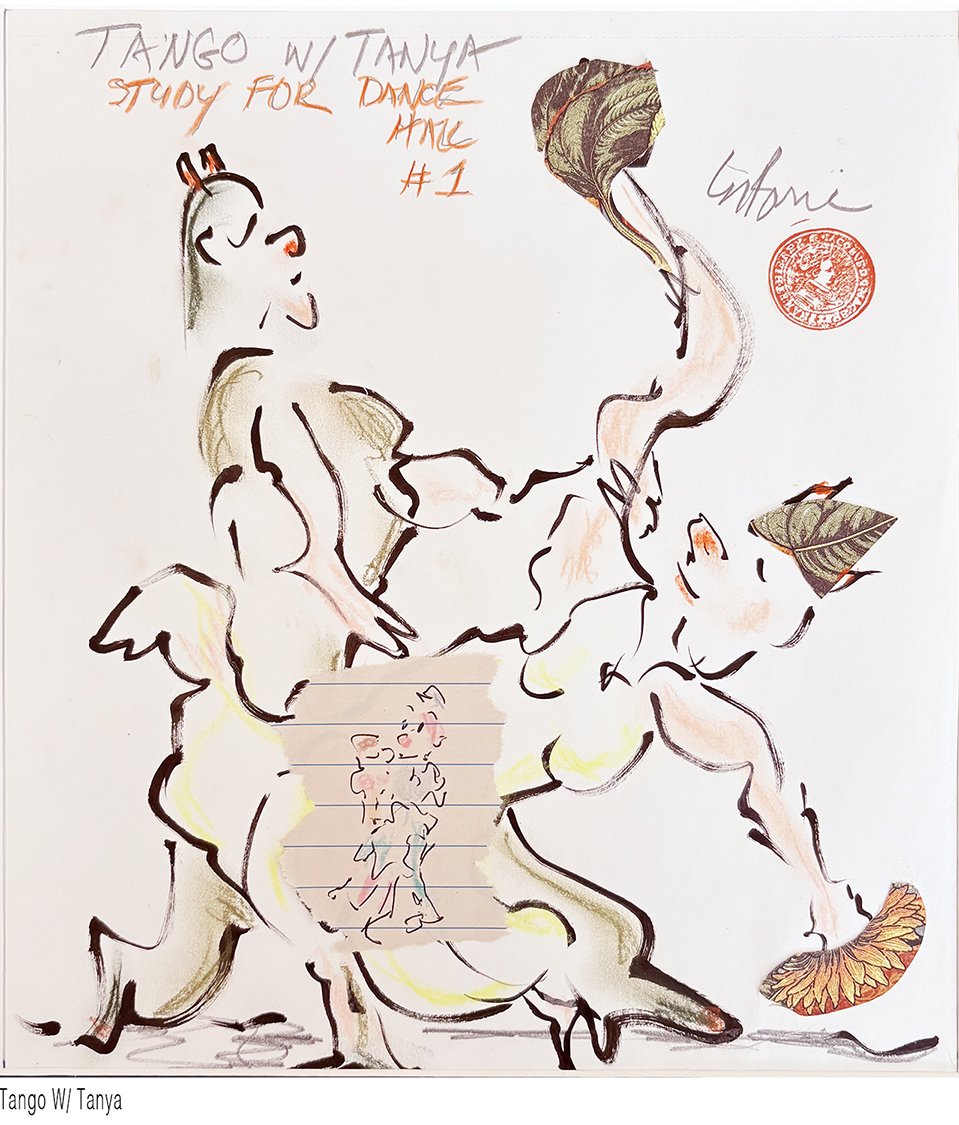 TANGO W/ TANYA
STUDY FOR DANCE
HALL
#1
Tango W/ Tanya